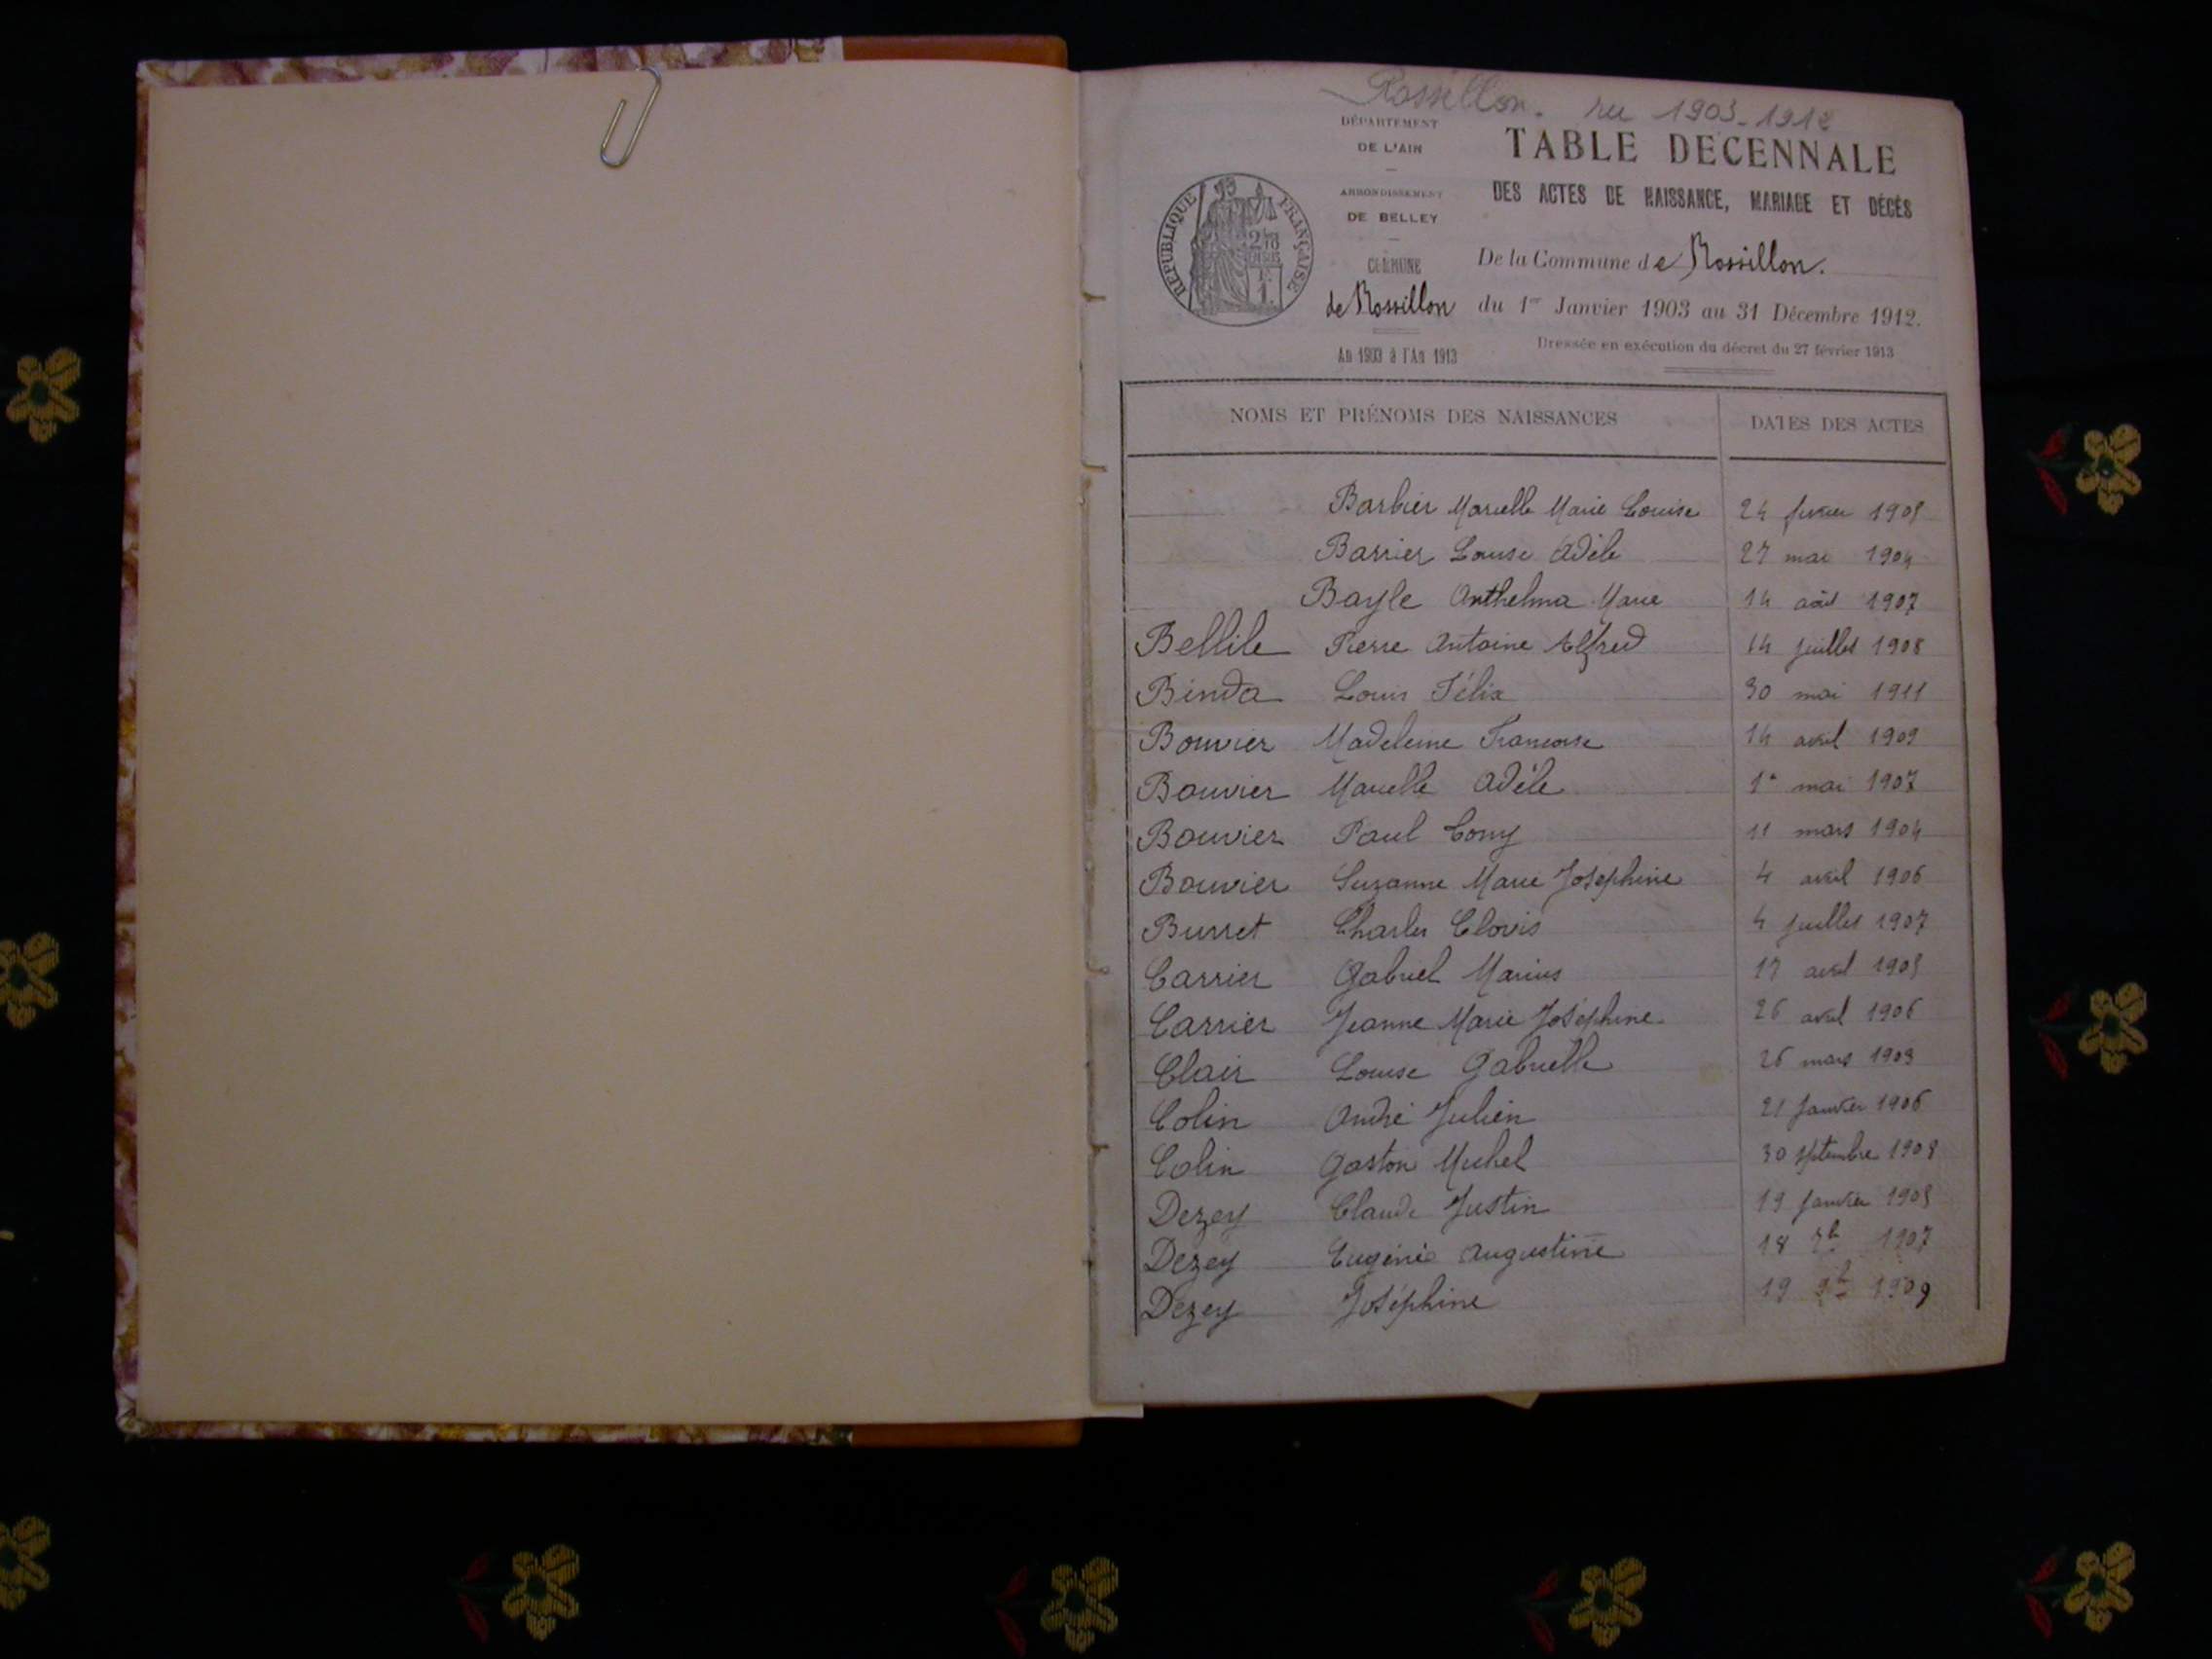 Rossillon. 1903-1912
DÉPARTEMENT
DE L'AIN
ARRONDISSEMENT
DE BELLEY
COMMUNE
de Rossillon
An 1903 à l'An 1913
RÉPUBLIQUE FRANÇAISE
TABLE DECENNALE
DES ACTES DE NAISSANCE, MARIAGE ET DÉCÈS
De la Commune de Rossillon.
du 1er Janvier 1903 au 31 Décembre 1912.
Dressée en exécution du décret du 27 février 1913
NOMS ET PRÉNOMS DES NAISSANCES DATES DES ACTES
Barbier Marcelle Marie Louise 24 février
Barrier Louise Adèle 27 mai 1904
Bayle Anthelma Marie 14 août 1907
Bellile Pierre Antoine Alfred 14 juillet 1908
Binda Louis Félix 30 mai 1911
Bouvier Madeleine Francoise 14 avril 1909
Bouvier Marcelle Adèle 1er mai 1907
Bouvier Paul 11 mars 1904
Bouvier Suzanne Marie Joséphine 4 avril 1906
Burret Charles Clovis 4 juillet 1907
Carrier Gabriel Marius 17 avril
Carrier Jeanne Marie Joséphine 26 avril 1906
Clair Louise Gabrielle 26 mars 1903
Colin André Julien 21 Janvier 1906
Colin Gaston Michel 30 septembre 1908
Dezey Claude Justin 19 Janvier
Dezey Eugénie Augustine 18 1907
Dezey Joséphine 19 1909